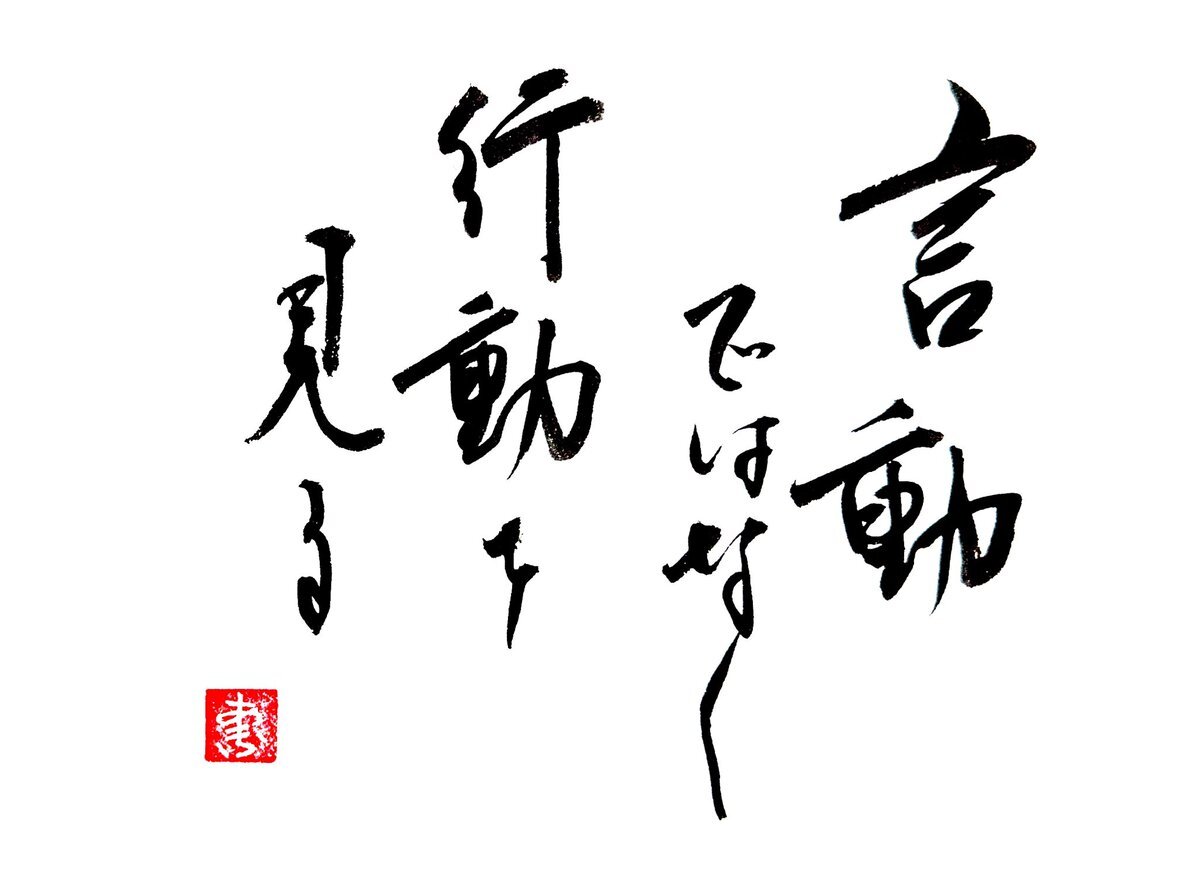 言動
ではなく
行動を
見る